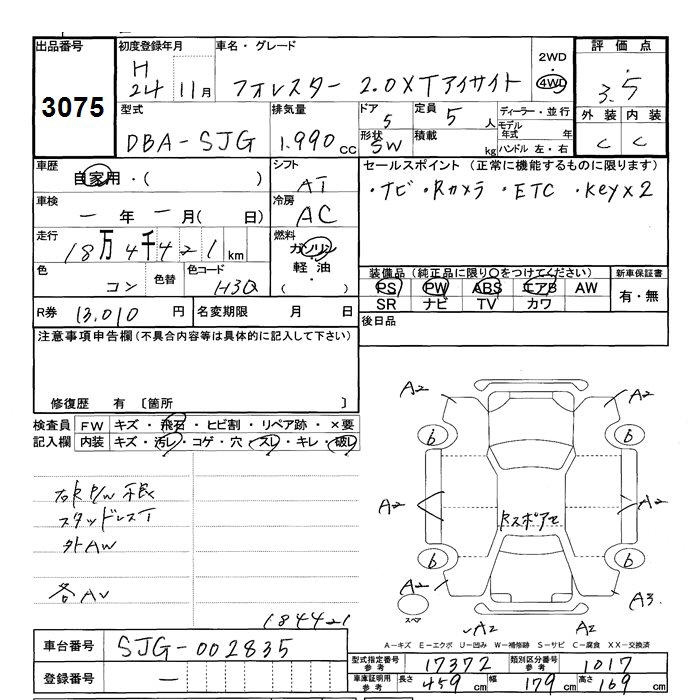 出品番号 初度登録年月 車名・グレード 2WD 評価点
3075 H 24 11月 フォレスター 2.0XTアイサイト 4WD 3.5
型式 排気量 ドア 定員 ディーラー・並行 外装 内装
DBA-SJG 1.990cc 5 5人 モデル年式 年 C C
形状 SW 積載 kg ハンドル 左・右
車歴 自家用・( ) シフト AT セールスポイント (正常に機能するものに限ります)
車検 ー年ー月( 日) 冷房 AC ・ナビ・Rカメラ・ETC・Key×2
走行 18万4千421km 燃料 ガソリン・軽油( )
色 コン 色替 色コード H3Q
装備品(純正品に限り○をつけてください) 新車保証書
PS PW ABS エアB AW 有・無
SR ナビ TV カワ
R券 13.010円 名変期限 月 日
後日品
注意事項申告欄(不具合内容等は具体的に記入して下さい)
修復歴 有 〔箇所 〕
検査員 FW キズ・飛石・ヒビ割・リペア跡・×要
記入欄 内装 キズ・汚レ・コゲ・穴・スレ・キレ・破レ
A2 A2
b b
右R P/W不良
スタッドレスT A2 A2
外AW RスポアセO
b b
A2 A3
各AU
184421 スペア A2 A2
A=キズ E=エクボ U=凹み W=補修跡 S=サビ C=腐食 XX=交換済
車台番号 SJG-002835
型式指定番号 参考 17372 類別区分番号 参考 1017
登録番号 ー
車庫証明用 参考 長さ 459cm 幅 179cm 高さ 169cm